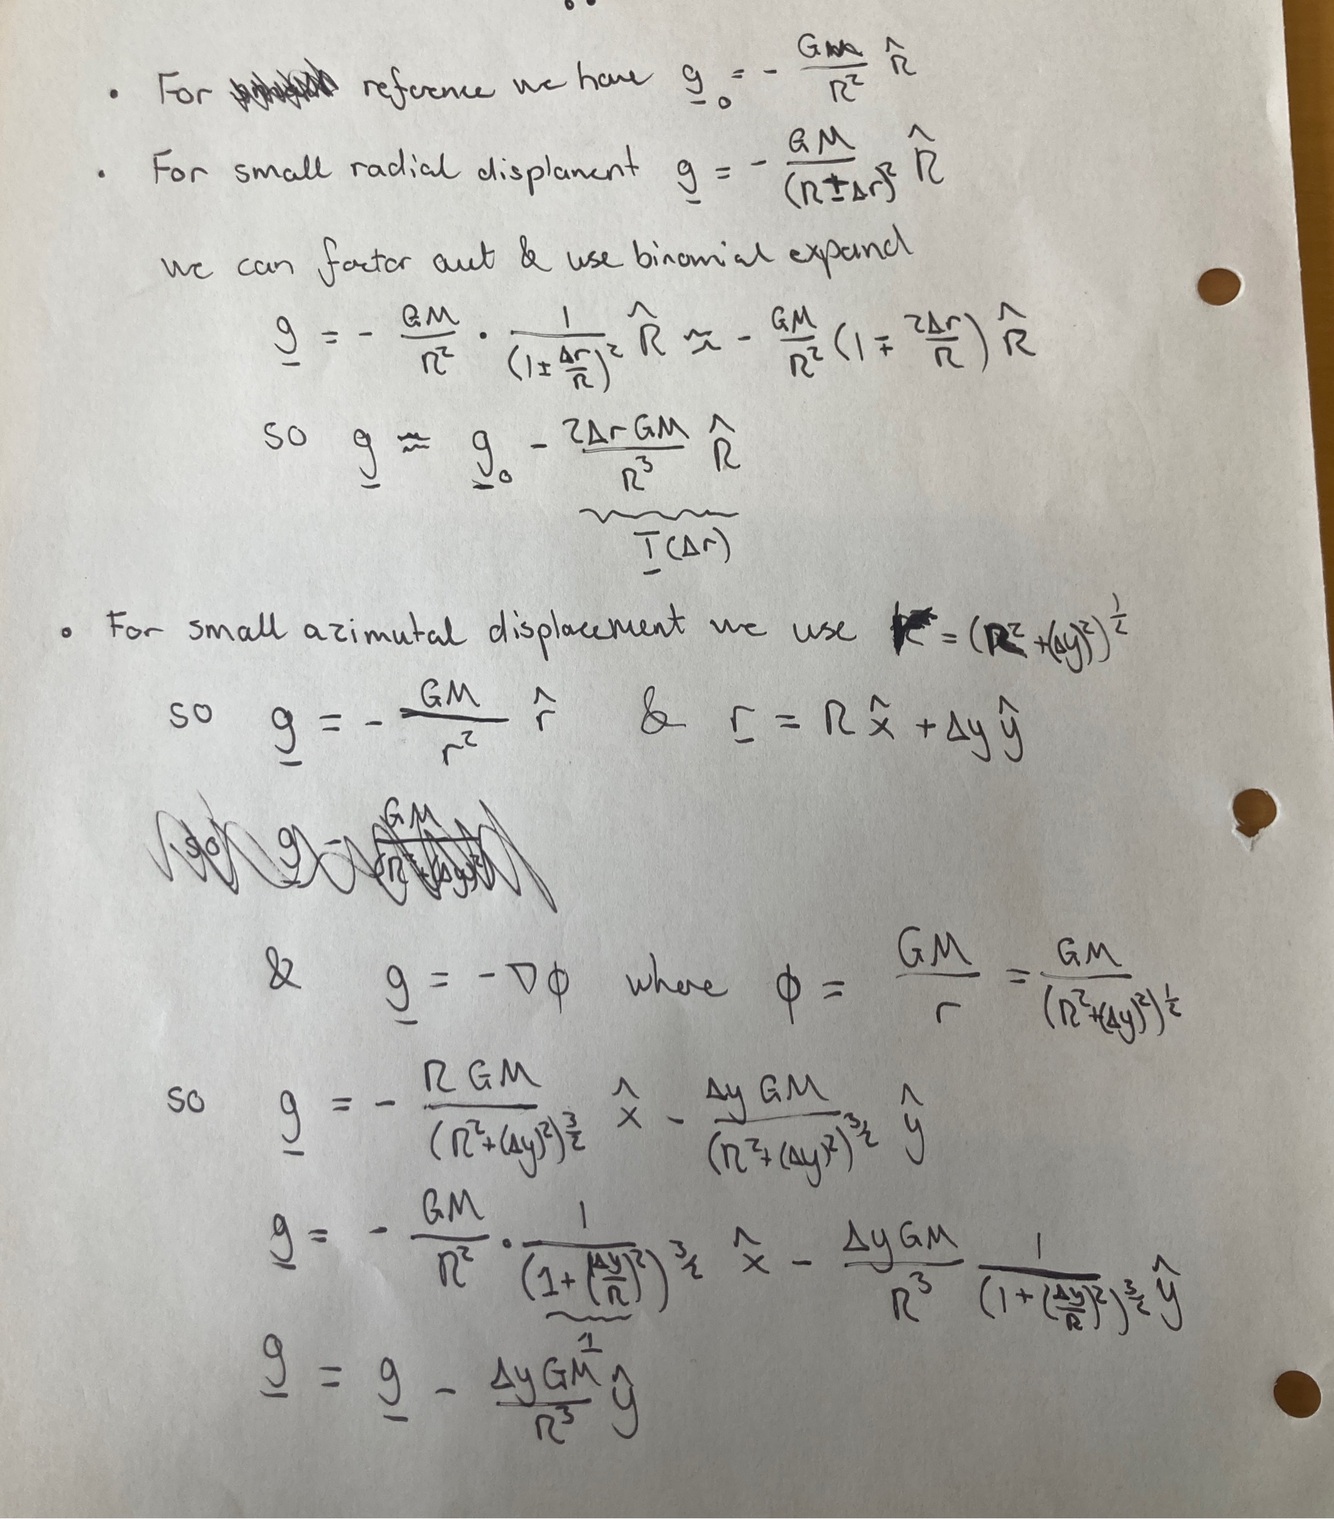 • For reference we have g₀ = - GM/R² R̂
• For small radial displament g = - GM/(R±Δr)² R̂
we can factor out & use binomial expand
g = - GM/R² · 1/(1±Δr/R)² R̂ ≈ - GM/R² (1∓ 2Δr/R) R̂
so g ≈ g₀ - 2ΔrGM/R³ R̂
T(Δr)
• For small azimutal displacement we use r = (R²+(Δy)²)^½
so g = - GM/r² r̂ & r = R x̂ + Δy ŷ
so g = - GM/(R²+(Δy)²)
& g = -∇ϕ where ϕ = GM/r = GM/(R²+(Δy)²)^½
so g = - R GM/(R²+(Δy)²)^3/2 x̂ - Δy GM/(R²+(Δy)²)^3/2 ŷ
g = - GM/R² · 1/(1+(Δy/R)²)^3/2 x̂ - Δy GM/R³ 1/(1+(Δy/R)²)^3/2 ŷ
1
g = g - Δy GM/R³ ŷ